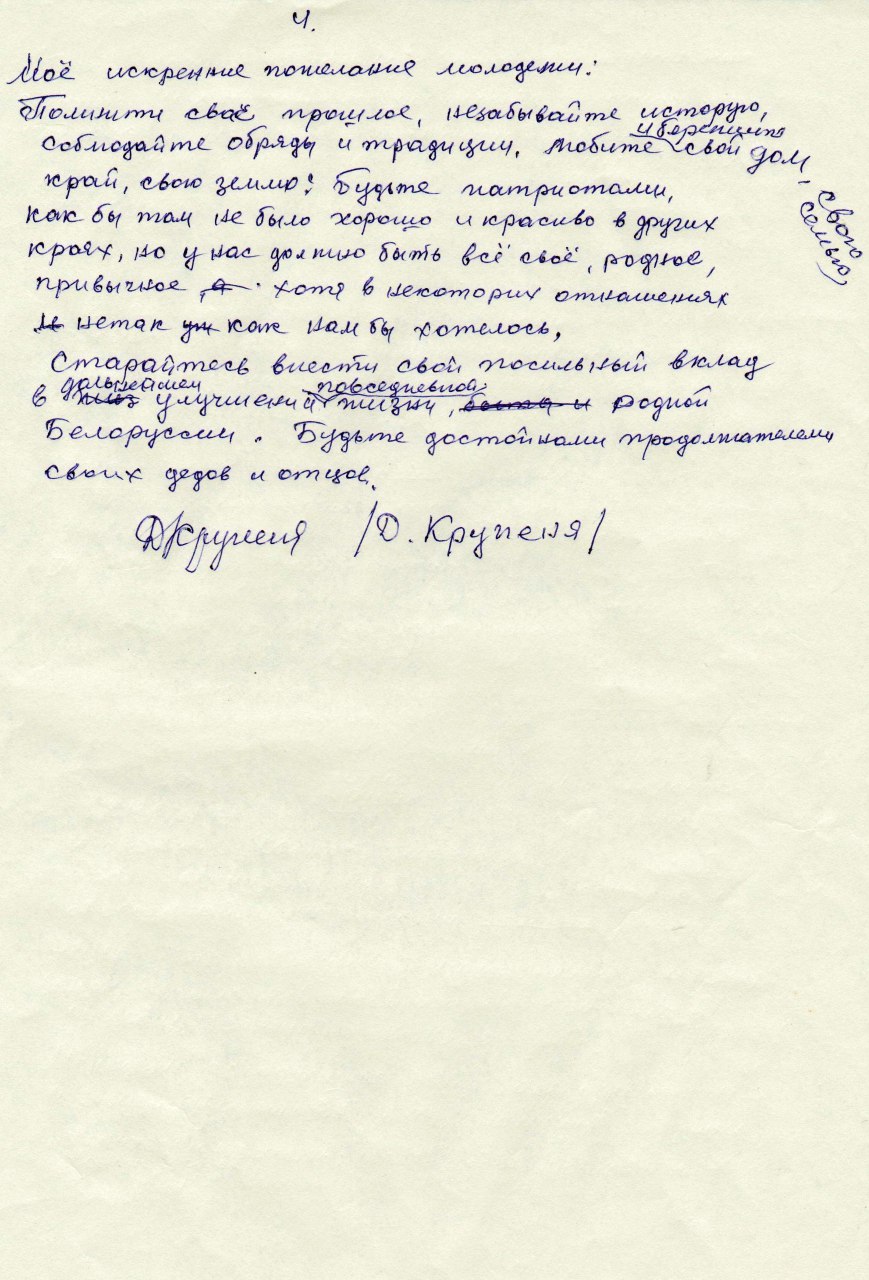 4.
Моё искренние пожелание молодежи:
Помните своё прошлое, незабывайте историю,
соблюдайте обряды и традиции. Любите и берегите свой дом, свою семью,
край, свою землю! Будьте патриотами,
как бы там не было хорошо и красиво в других
краях, но у нас должно быть всё своё, родное,
привычное, хотя в некоторих отношениях
нетак как нам бы хотелось,
Старайтесь внести свой посильный вклад
в дальнейшем улучшений повседневной жизни, родной
Белоруссии. Будьте достойнами продолжателеми
своих дедов и отцов.
ДКрупеня /Д. Крупеня/